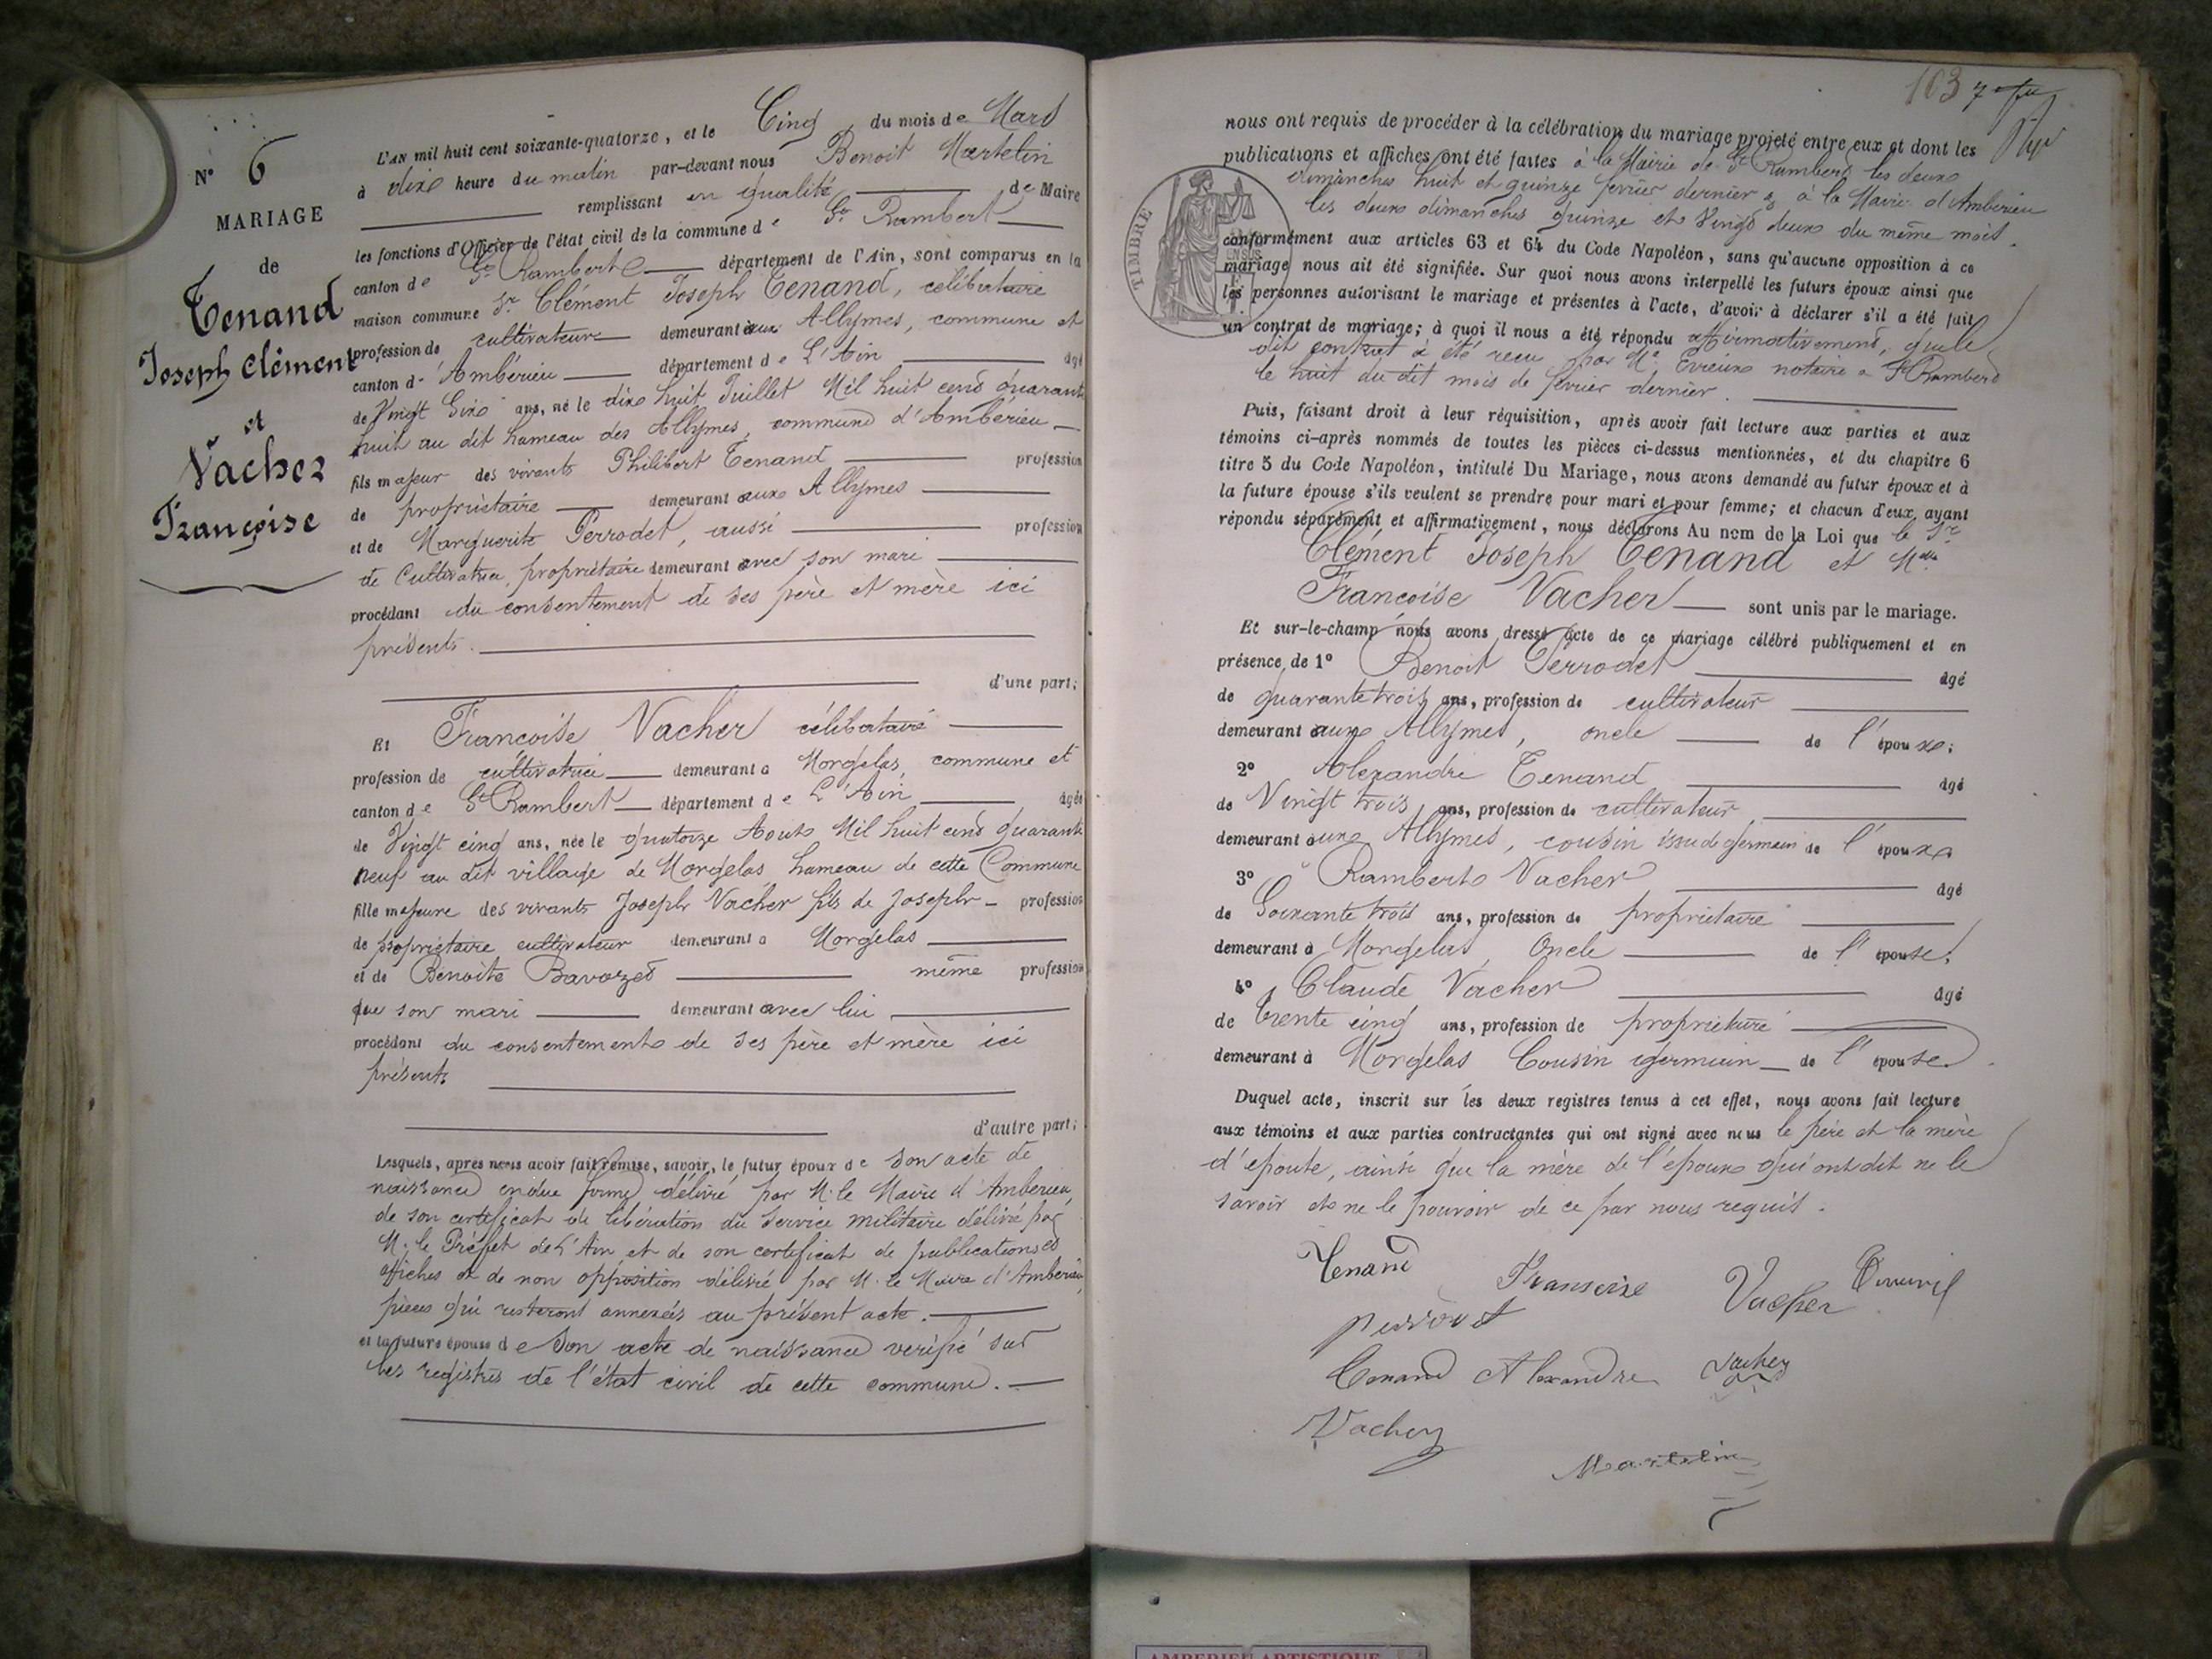 N° 6
MARIAGE
de
Tenand
Joseph Clément
et
Vacher
Françoise
L'AN mil huit cent soixante-quatorze, et le Cinq du mois de Mars
à dixe heure du matin par-devant nous Benoit Martelin
remplissant en qualité de Maire
les fonctions d'Officier de l'état civil de la commune de St Rambert
canton de St Rambert département de l'Ain, sont comparus en la
maison commune Sr Clément Joseph Tenand, célibataire
profession de cultivateur demeurant aux Allymes, commune et
canton d' Ambérieu département de L'Ain âgé
de Vingt Sixe ans, né le dixe huit Juillet Mil huit cent quarante
huit au dit hameau des Allymes, commune d'Ambérieu
fils majeur des vivants Philibert Tenand profession
de propriétaire demeurant aux Allymes
et de Marguerite Perrodet, aussi profession
de Cultivatrice, propriétaire demeurant avec son mari
procédant du consentement de ses père et mère ici
présents.
d'une part;
Et Françoise Vacher célibataire
profession de cultivatrice demeurant à Morgelas, commune et
canton de St Rambert département de L'Ain âgée
de Vingt cinq ans, née le quatorze Aouts Mil huit cent quarante
neuf au dit village de Morgelas hameau de cette Commune
fille majeure des vivants Joseph Vacher fils de Joseph profession
de propriétaire cultivateur demeurant à Morgelas
et de Benoite Bavozet même profession
que son mari demeurant avec lui
procédant du consentement de ses père et mère ici
présents
d'autre part;
Lesquels, après nous avoir fait remise, savoir, le futur époux de son acte de
naissance en due forme délivré par M. le Maire d'Amberieu,
de son certificat de libération du service militaire délivré par
M. le Préfet de L'Ain et de son certificat de publications et
affiches et de non opposition délivré par M. le Maire d'Amberieu,
pièces qui resteront annexées au présent acte.
et la future épouse de son acte de naissance verifié sur
les registres de l'état civil de cette commune.
103
nous ont requis de procéder à la célébration du mariage projeté entre eux et dont les
publications et affiches ont été faites à la Mairie de St Rambert les deux
dimanches huit et quinze fevrier dernier & à la Mairie d'Amberieu
les deux dimanches quinze et Vingt deux du même mois.
TIMBRE
conformément aux articles 63 et 64 du Code Napoléon, sans qu'aucune opposition à ce
mariage nous ait été signifiée. Sur quoi nous avons interpellé les futurs époux ainsi que
les personnes autorisant le mariage et présentes à l'acte, d'avoir à déclarer s'il a été fait
un contrat de mariage; à quoi il nous a été répondu affirmativement, que le
dit contrat à été recu par Me Evrieux notaire à St Rambert
le huit du dit mois de fevrier dernier.
Puis, faisant droit à leur réquisition, après avoir fait lecture aux parties et aux
témoins ci-après nommés de toutes les pièces ci-dessus mentionnées, et du chapitre 6
titre 5 du Code Napoléon, intitulé Du Mariage, nous avons demandé au futur époux et à
la future épouse s'ils veulent se prendre pour mari et pour femme; et chacun d'eux, ayant
répondu séparément et affirmativement, nous déclarons Au nom de la Loi que le Sr
Clément Joseph Tenand et Melle
Françoise Vacher sont unis par le mariage.
Et sur-le-champ nous avons dressé acte de ce mariage célébré publiquement et en
présence de 1° Benoit Perrodet âgé
de quarante trois ans, profession de cultivateur
demeurant aux Allymes, oncle de l'épouxe;
2° Alexandre Tenand âgé
de Vingt trois ans, profession de cultivateur
demeurant aux Allymes, cousin issu de germain de l'épouxe
3° Ramberts Vacher âgé
de Soixante trois ans, profession de propriétaire
demeurant à Morgelas, Oncle de l'épouse,
4° Claude Vacher âgé
de trente cinq ans, profession de propriétaire
demeurant à Morgelas Cousin germain de l'épouse.
Duquel acte, inscrit sur les deux registres tenus à cet effet, nous avons fait lecture
aux témoins et aux parties contractantes qui ont signé avec nous le père et la mère
d'epoute, ainsi que la mère de l'epoux qui ont dit ne le
savoir et ne le pouvoir de ce par nous requis.
Tenand Franseise Vacher
Tenand Alexandre Vacher
Vacher
Martelin
AMBERIEU ARTISTIQUE